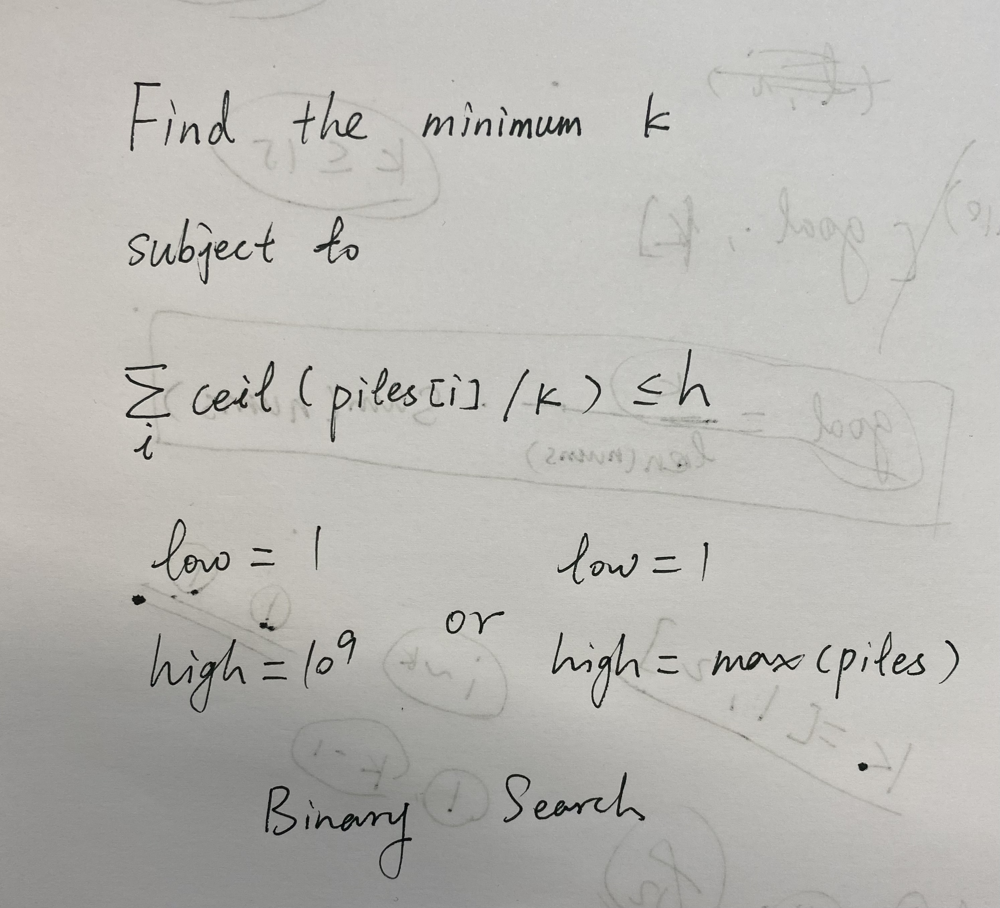 Find the minimum k
subject to
∑ ceil (piles[i] / k) ≤ h
i
low = 1
high = 10⁹
or
low = 1
high = max (piles)
Binary Search